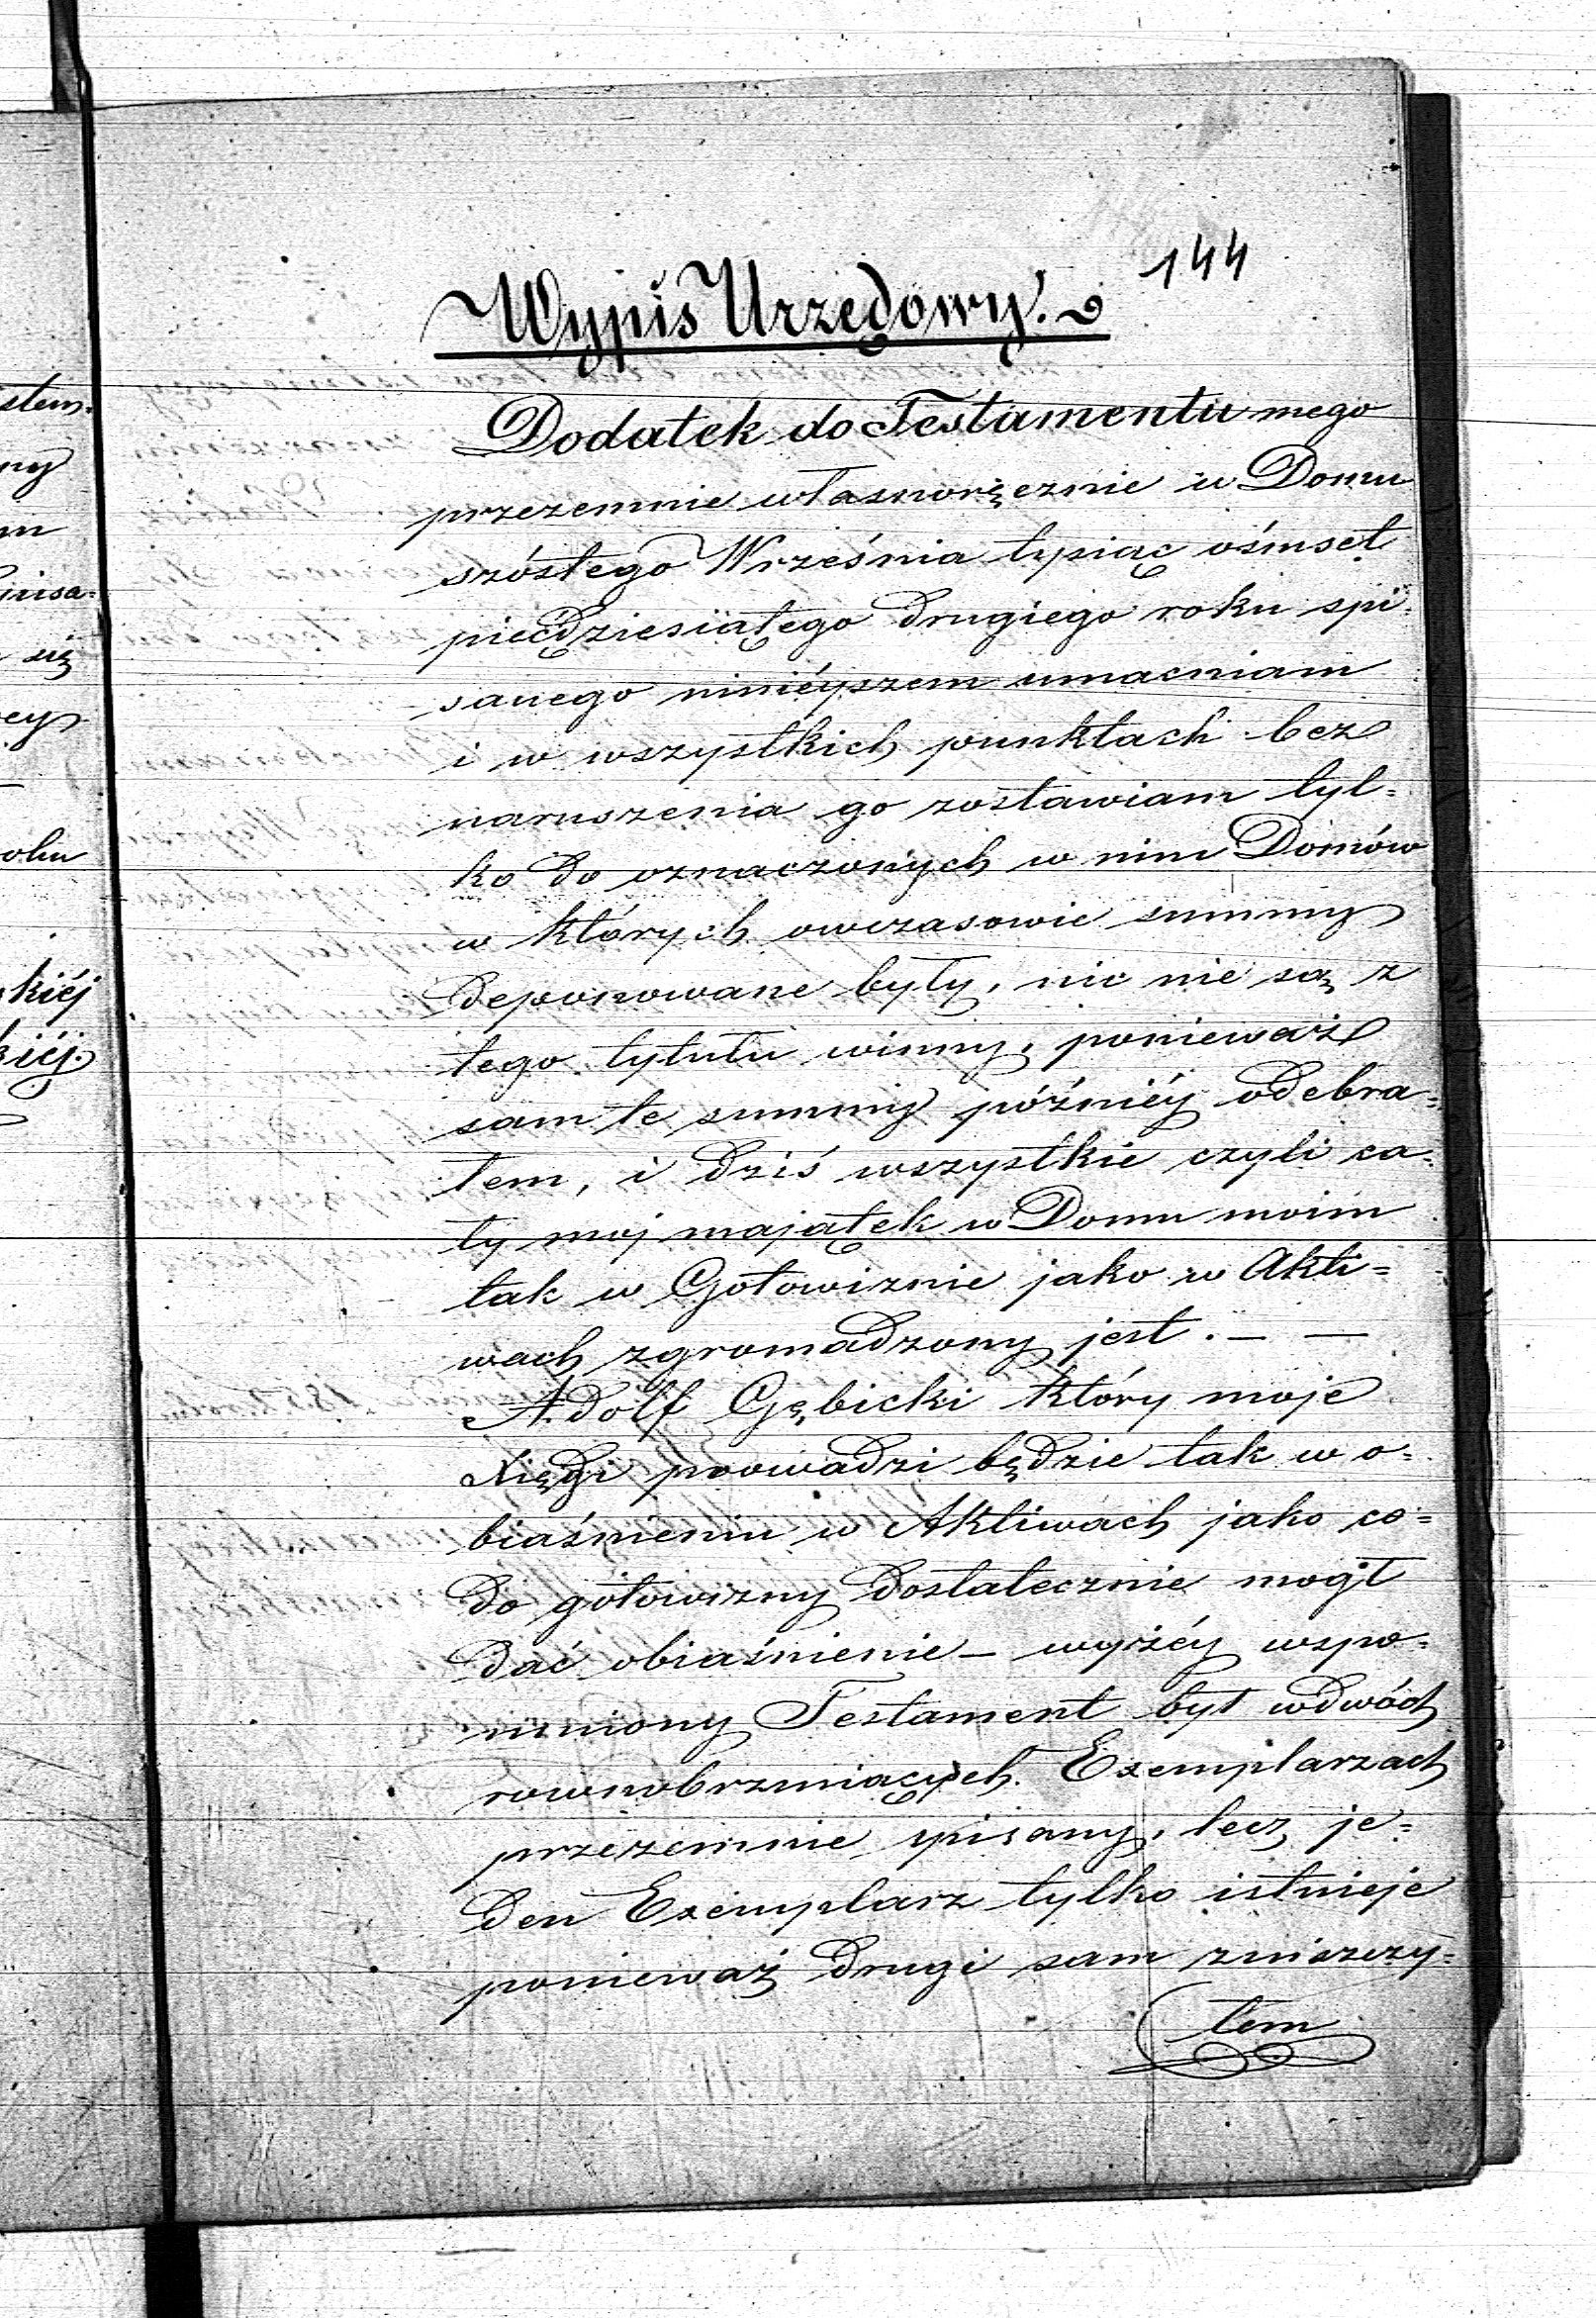 144
Wypis Urzędowy.
Dodatek do Testamentu mego
przezemnie własnoręcznie w Domu
szóstego Września tysiąc ośmset
piećdziesiątego drugiego roku spi-
sanego niniéyszem umacniam
i w wszystkich punktach bez
naruszenia go zostawiam tyl=
ko do oznaczonych w nim Domów
w których owczasowie summy
deponowane były, nic nie są z
tego tytułu winny, ponieważ
sam te summy późniéy odebra=
łem, i dziś wszystkie czyli ca=
ły moj majątek w Domu moim
tak w Gotowiznie jako w Akti=
wach zgromadzony jest. — —
Adolf Gębicki który moje
Xięgi prowadzi będzie tak w o=
biaśnieniu w Aktiwach jako co=
do gotowizny dostatecznie mogł
dać obiaśnienie — wyżéy wspo=
mniony Testament był wdwóch
rownobrzmiących Exemplarzach
przezemnie spisany, lecz je=
den Exemplarz tylko istnieje
ponieważ drugi sam zniszczy=
łem
stem=
ny
m
się
ey
oku
skiéj
kiéj